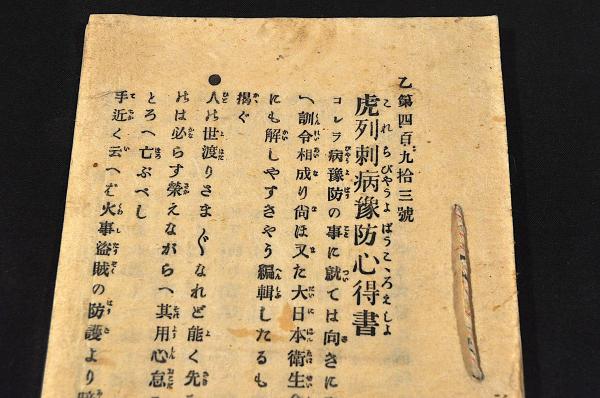 乙第四百九拾三號
虎列刺病豫防心得書
コレラ病豫防の事に就ては向きに
へ訓令相成り尚ほ又た大日本衛生會
にも解しやすきやう編輯したるも
掲ぐ
●人は世渡りさま〴〵なれど能く先
のは必らず榮えながらへ其用心怠
ところへ亡ぶべし
手近く云へば火事盜賊の防護より